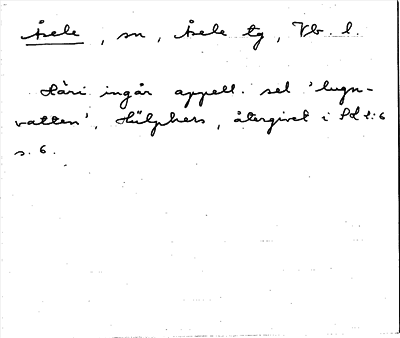 Åsele, sn, Åsele tg, Vb. l.
Häri ingår appell. sel 'lugn-
vatten', Hülphers, återgivet i Sd 1:6
s. 6.